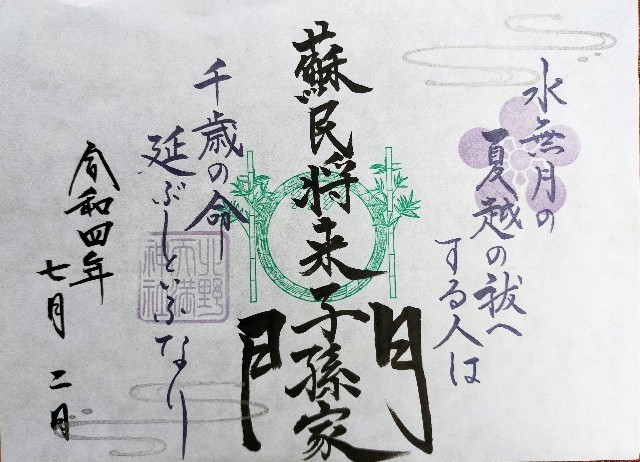 水無月の
夏越の祓へ
する人は
蘇民将来子孫家門
千歳の命
延ぶといふなり
北野
天満
神社
令和四年
七月二日